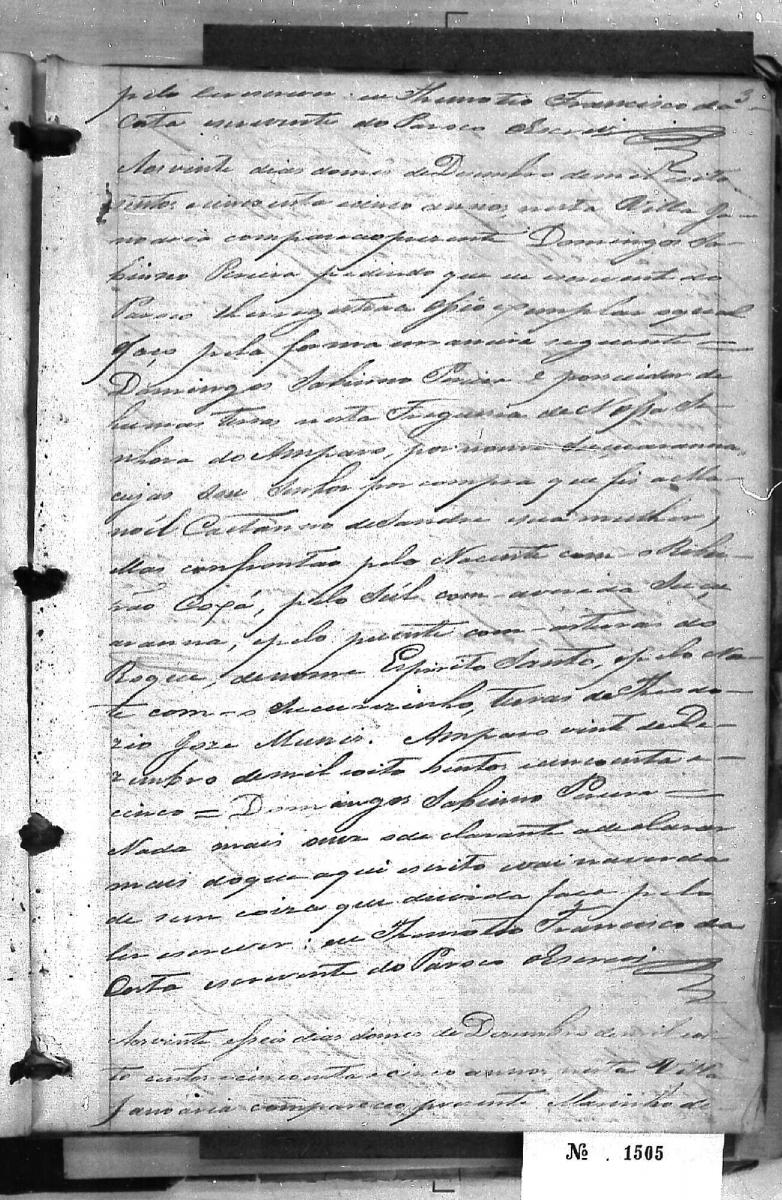 pelo ler escrever: eu Themotio Francisco da 3
Costa escrevente do Paroco Escrevi
Aos vinte dias do mes de Desembro de mil oito
sentos e cincoenta e cinco annos, nesta Villa Ja-
nuaria compareceo prezente Domingos Sa-
birno Pereira pedindo que eu escrevente do
Paroco lhe registrara os exemplar o qual
faço pela forma e maneira seguinte =
Domingos Sabirno Pereira é possuidor de
humas terras nesta Freguesia de Nossa Se-
nhora do Amparo, por nome
cujas sou Senhor por compra que fis a Ma-
noel Caetanno de e sua mulher,
ellas confrontão pelo Nacente com o Riba-
rão Coxá, pelo Súl com a vereda Sucu-
aranna, e pelo poente com as terras do
Roque, de nome Espirito Santo, e pelo No-
te com o Sucurizinho, terras de Theodo-
zio Joze Munis. Amparo vinte de De-
zembro de mil e oito sentos e cincoenta e
cinco = Domingos Sabirno Pereira =
Nada mais o declarante a declarar
mais do que aqui escrito vai na verda
de sem coiza que duvida faça pelo
ler escrever: eu Themotio Francisco da
Costa escrevente do Paroco Escrevi
Aos vinte e seis dias do mes de Dezembro de mil oi-
to centos e cincoenta e cinco annos nesta Villa
Januaria compareceo prezente Marinho de
Nº . 1505